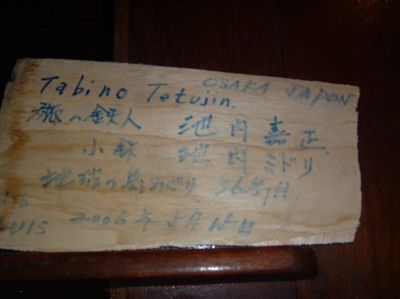 Tabino Tetujin. OSAKA JAPON
旅の鉄人 池内嘉正
小鉄 池内ミドリ
地球の めぐり 36
LUIS 2006年 月 日